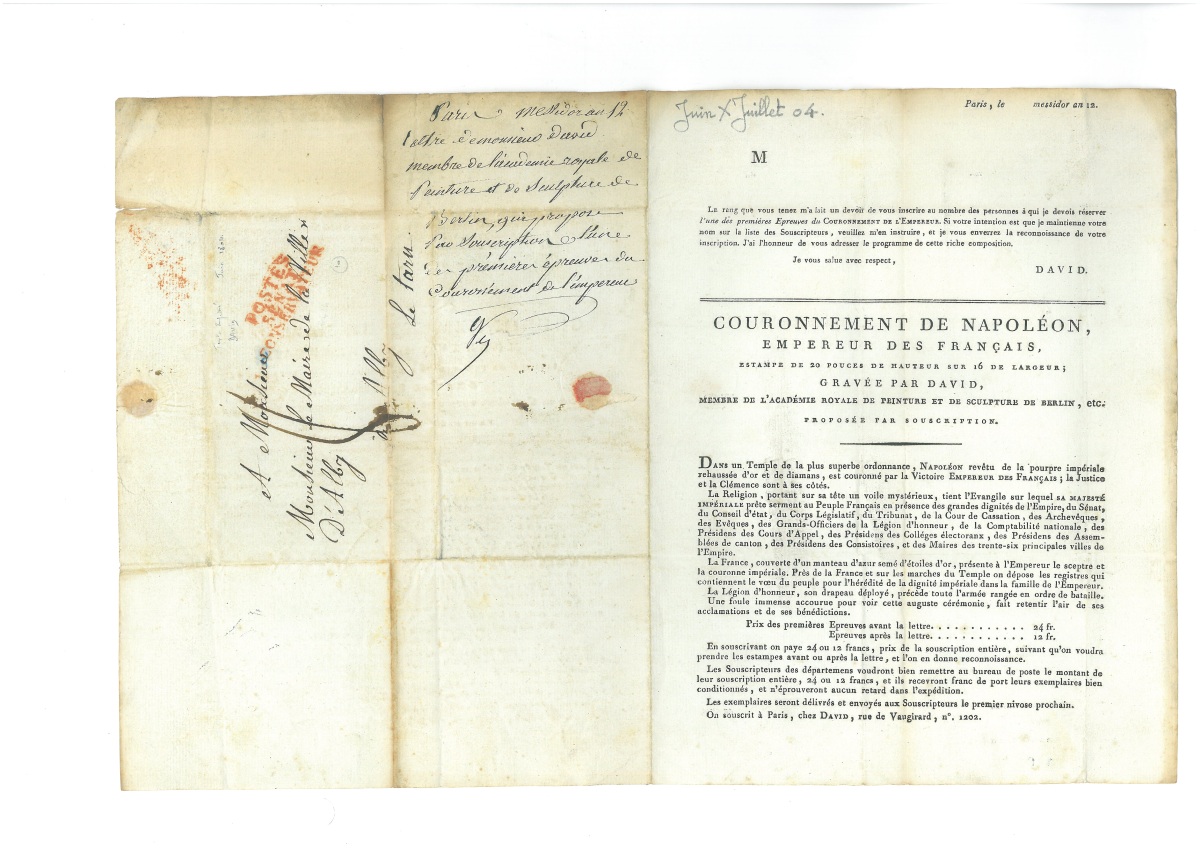 A Monsieur
Monsieur le Maire de la Ville
D'Alby
à Alby
Le tarn.
POSTES
SÉNAT
CONSERVATEUR
Paris messidor an 12
lettre de monsieur david
membre de l'academie royale de
Peinture et de Sculpture de
Berlin, qui propose
Par Souscription l'une
des prémieres épreuves du
Couronnement de l'empereur
Juin X Juillet 04.
Paris, le messidor an 12.
M
Le rang que vous tenez m'a fait un devoir de vous inscrire au nombre des personnes à qui je devois réserver
l'une des premières Epreuves du COURONNEMENT DE L'EMPEREUR. Si votre intention est que je maintienne votre
nom sur la liste des Souscripteurs, veuillez m'en instruire, et je vous enverrez la reconnoissance de votre
inscription. J'ai l'honneur de vous adresser le programme de cette riche composition.
Je vous salue avec respect,
DAVID.
COURONNEMENT DE NAPOLÉON,
EMPEREUR DES FRANÇAIS,
ESTAMPE DE 20 POUCES DE HAUTEUR SUR 16 DE LARGEUR;
GRAVÉE PAR DAVID,
MEMBRE DE L'ACADÉMIE ROYALE DE PEINTURE ET DE SCULPTURE DE BERLIN, etc.
PROPOSÉE PAR SOUSCRIPTION.
DANS un Temple de la plus superbe ordonnance, NAPOLÉON revêtu de la pourpre impériale
rehaussée d'or et de diamans, est couronné par la Victoire EMPEREUR DES FRANÇAIS; la Justice
et la Clémence sont à ses côtés.
La Religion, portant sur sa tête un voile mystérieux, tient l'Evangile sur lequel SA MAJESTÉ
IMPÉRIALE prête serment au Peuple Français en présence des grandes dignités de l'Empire, du Sénat,
du Conseil d'état, du Corps Législatif, du Tribunat, de la Cour de Cassation, des Archevêques,
des Evêques, des Grands-Officiers de la Légion d'honneur, de la Comptabilité nationale, des
Présidens des Cours d'Appel, des Présidens des Colléges électoranx, des Présidens des Assem-
blées de canton, des Présidens des Consistoires, et des Maires des trente-six principales villes de
l'Empire.
La France, couverte d'un manteau d'azur semé d'étoiles d'or, présente à l'Empereur le sceptre et
la couronne impériale. Près de la France et sur les marches du Temple on dépose les registres qui
contiennent le vœu du peuple pour l'hérédité de la dignité impériale dans la famille de l'Empereur.
La Légion d'honneur, son drapeau déployé, précède toute l'armée rangée en ordre de bataille.
Une foule immense accourue pour voir cette auguste cérémonie, fait retentir l'air de ses
acclamations et de ses bénédictions.
Prix des premières Epreuves avant la lettre. . . . . . . . . . . . 24 fr.
Epreuves après la lettre. . . . . . . . . . . . 12 fr.
En souscrivant on paye 24 ou 12 francs, prix de la souscription entière, suivant qu'on voudra
prendre les estampes avant ou après la lettre, et l'on en donne reconnoissance.
Les Souscripteurs des départemens voudront bien remettre au bureau de poste le montant de
leur souscription entière, 24 ou 12 francs, et ils recevront franc de port leurs exemplaires bien
conditionnés, et n'éprouveront aucun retard dans l'expédition.
Les exemplaires seront délivrés et envoyés aux Souscripteurs le premier nivose prochain.
On souscrit à Paris, chez DAVID, rue de Vaugirard, n°. 1202.